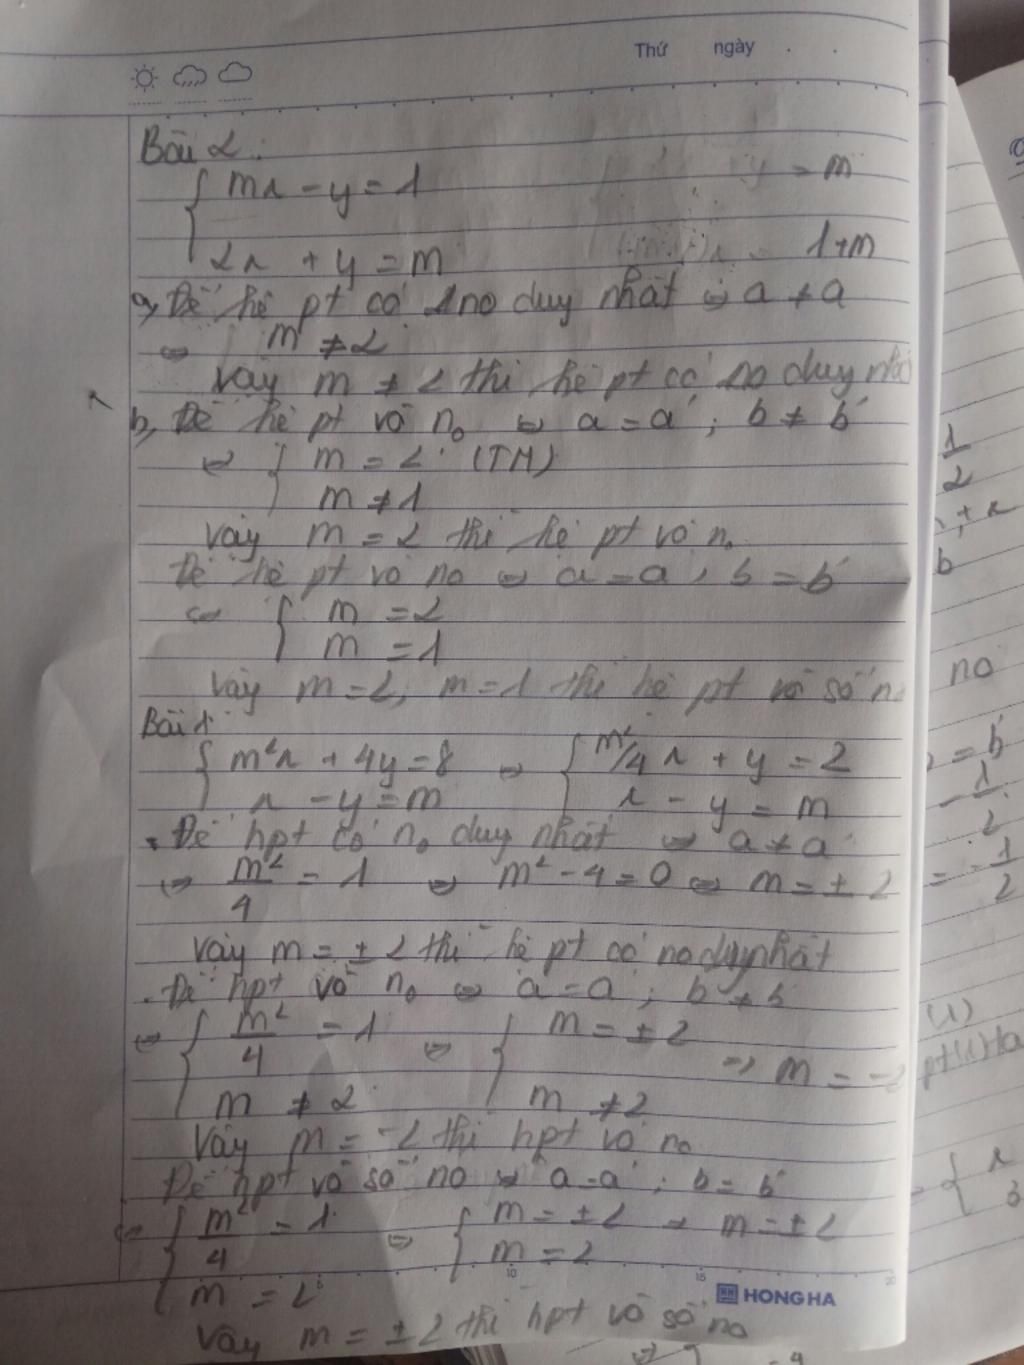 Thứ ngày
Bài 2:
{ mx - y = 1
{ 2x + y = m
y = m
x = 1+m
a, Để hệ pt có 1 no duy nhất ⇔ a ≠ a'
⇔ m ≠ 2
Vậy m ≠ 2 thì hệ pt có no duy nhất
b, Để hệ pt vô no ⇔ a = a' ; b ≠ b'
⇔ { m = 2 (TM)
{ m ≠ 1
Vậy m = 2 thì hệ pt vô no
Để hệ pt vô no ⇔ a = a' ; b = b'
⇔ { m = 2
{ m = 1
Vậy m = 2, m = 1 thì hệ pt vô số no
Bài 1:
{ m²x + 4y = 8 ⇔ { m²/4 x + y = 2
{ x - y = m { x - y = m
Để hpt có no duy nhất ⇔ a ≠ a'
⇔ m²/4 = 1 ⇔ m² - 4 = 0 ⇔ m = ± 2
Vậy m = ± 2 thì hệ pt có no duy nhất
Để hpt vô no ⇔ a = a' ; b ≠ b'
⇔ { m²/4 = 1 ⇔ { m = ± 2 ⇒ m = -2
{ m ≠ 2 { m ≠ 2
Vậy m = -2 thì hpt vô no
Để hpt vô số no ⇔ a = a' ; b = b'
⇔ { m²/4 = 1 ⇔ { m = ± 2 → m = ± 2
{ m = 2 { m = 2
5 10 15 20
HONG HA
Vậy m = ± 2 thì hpt vô số no